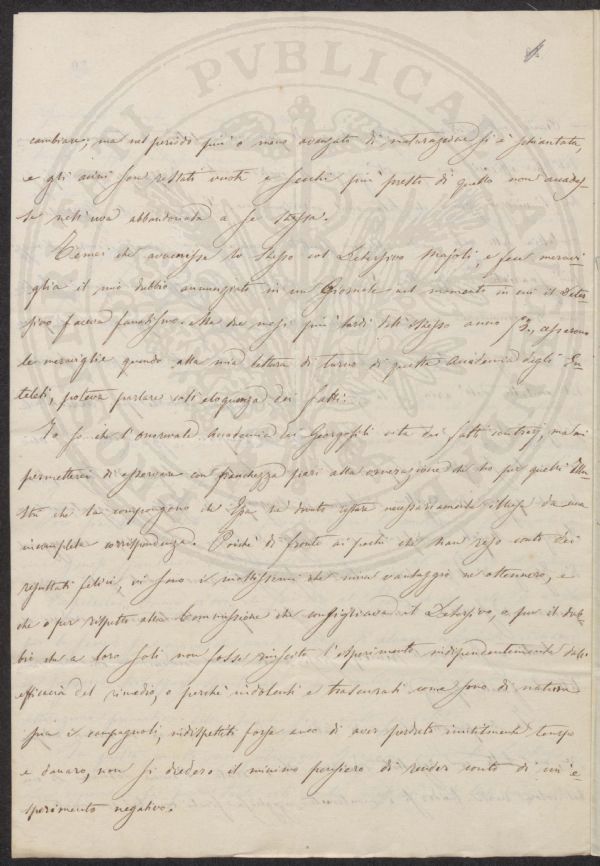 cambiare; ma nel periodo più o meno avanzato di maturazione si è schiantata,
e gli acini son restati vuoti e secchi più presto di quello non accades-
se nell'uva abbandonata a se stessa.
Temei che avvenisse lo stesso col Detersivo Majoli, e fece meravi-
glia il mio dubbio annunziato in un Giornale nel momento in cui il Deter-
sivo faceva fanatismo. Ma due mesi più tardi dell'istesso anno cessarono
le meraviglie quando alla mia lettura di turno di questa Accademia degli Eu-
teleti, poteva parlare coll'eloquenza dei fatti.
Io so che l'onorevole Accademia dei Georgofili cita dei fatti contrarj, ma mi
permetterei di osservare con franchezza pari alla venerazione che ho per quelli Illu-
stri che la compongono che Essa ha dovuto restare necessariamente illusa da una
incompleta corrispondenza. Poichè di fronte ai pochi che han reso conto dei
resultati felici, vi sono i moltissimi che niun vantaggio ne ottennero, e
che o per rispetto alla Commissione che consigliava il Detersivo, o per il dub-
bio che a loro soli non fosse riuscito l'esperimento indipendentemente dall'
efficacia del rimedio, o perchè indolenti e trascurati come sono di natura
sua i campagnoli, indispettiti forse anco di aver perduto inutilmente tempo
e danaro, non si diedero il minimo pensiero di render conto di un e-
sperimento negativo.